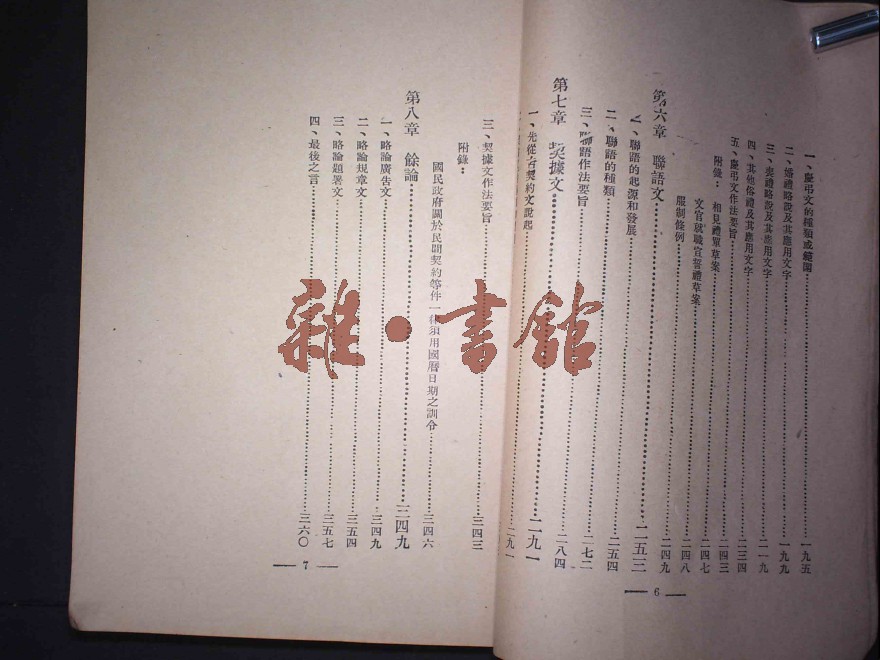 一、慶弔文的種類或範圍……一九五
二、婚禮略說及其應用文字……一九九
三、喪禮略說及其應用文字……二一九
四、其他俗禮及其應用文字……二三四
五、慶弔文作法要旨……二四三
附錄：相見禮單草案……二四七
文官就職宣誓禮草案……二四八
服制條例……二四九
第六章 聯語文……二五三
一、聯語的起源和發展……二五三
二、聯語的種類……二五四
三、聯語作法要旨……二七二
第七章 契據文……二八四
一、先從古契約文說起……二九一
二九一
— 6 —
三、契據文作法要旨……三四三
附錄：
國民政府關於民間契約等件一律須用國曆日期之訓令……三四六
第八章 餘論……三四九
一、略論廣告文……三四九
二、略論規章文……三五四
三、略論題署文……三五七
四、最後之言……三六〇
— 7 —
雜·書館